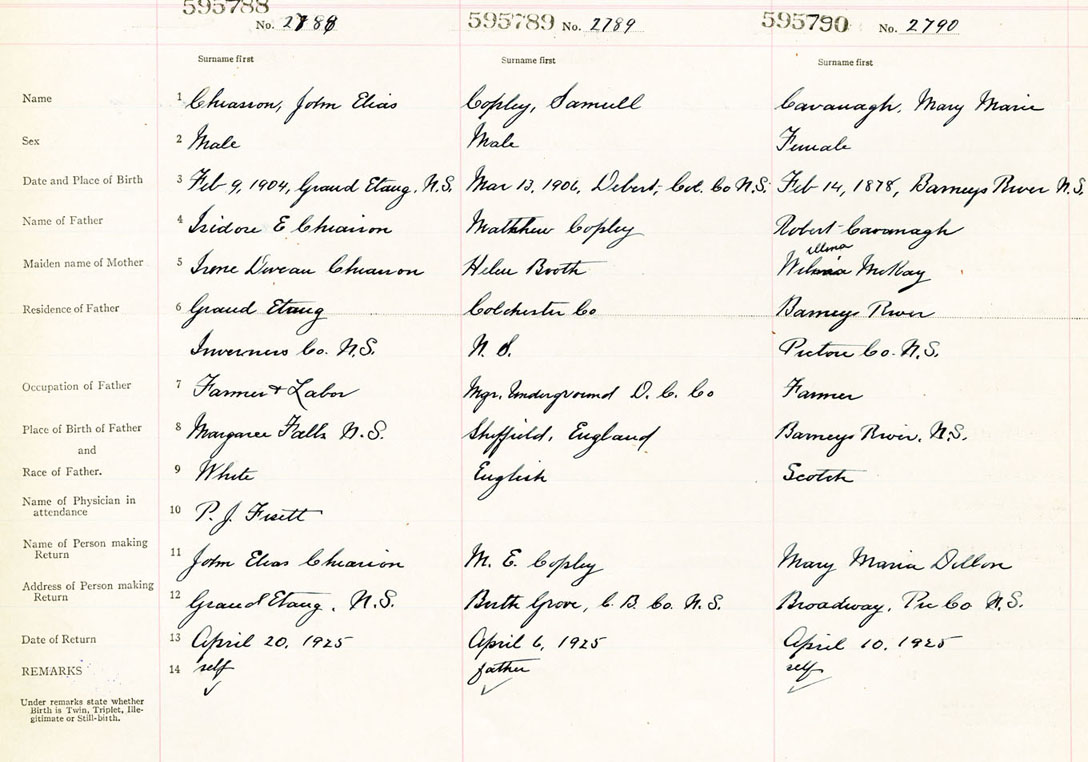 595788 No. 2788 595789 No. 2789 595790 No. 2790
Surname first Surname first Surname first
Name 1 Chiasson, John Elias Copley, Samuell Cavanagh, Mary Maria
Sex 2 Male Male Female
Date and Place of Birth 3 Feb 9, 1904, Grand Etang, N.S. Mar 13, 1906, Debert, Col. Co N.S. Feb 14, 1878, Barneys River N.S.
Name of Father 4 Isidore E Chiasson Matthew Copley Robert Cavanagh
illma
Maiden name of Mother 5 Irene Deveau Chiasson Helen Booth McKay
Residence of Father 6 Grand Etang Colchester Co Barneys River
Inverness Co. N.S. N. S. Pictou Co. N.S.
Occupation of Father 7 Farmer & Labor Mgr. Underground D. C. Co Farmer
Place of Birth of Father 8 Margaree Falls N.S. Sheffield, England Barneys River, N.S.
and
Race of Father. 9 White English Scotch
Name of Physician in
attendance 10 P. J. Fisett
Name of Person making
Return 11 John Elias Chiasson M. E. Copley Mary Maria Dillon
Address of Person making
Return 12 Grand Etang, N.S. Birch Grove, C. B. Co. N.S. Broadway, Pic Co N.S.
Date of Return 13 April 20, 1925 April 6, 1925 April 10, 1925
REMARKS 14 self father self
Under remarks state whether
Birth is Twin, Triplet, Ille-
gitimate or Still-birth.